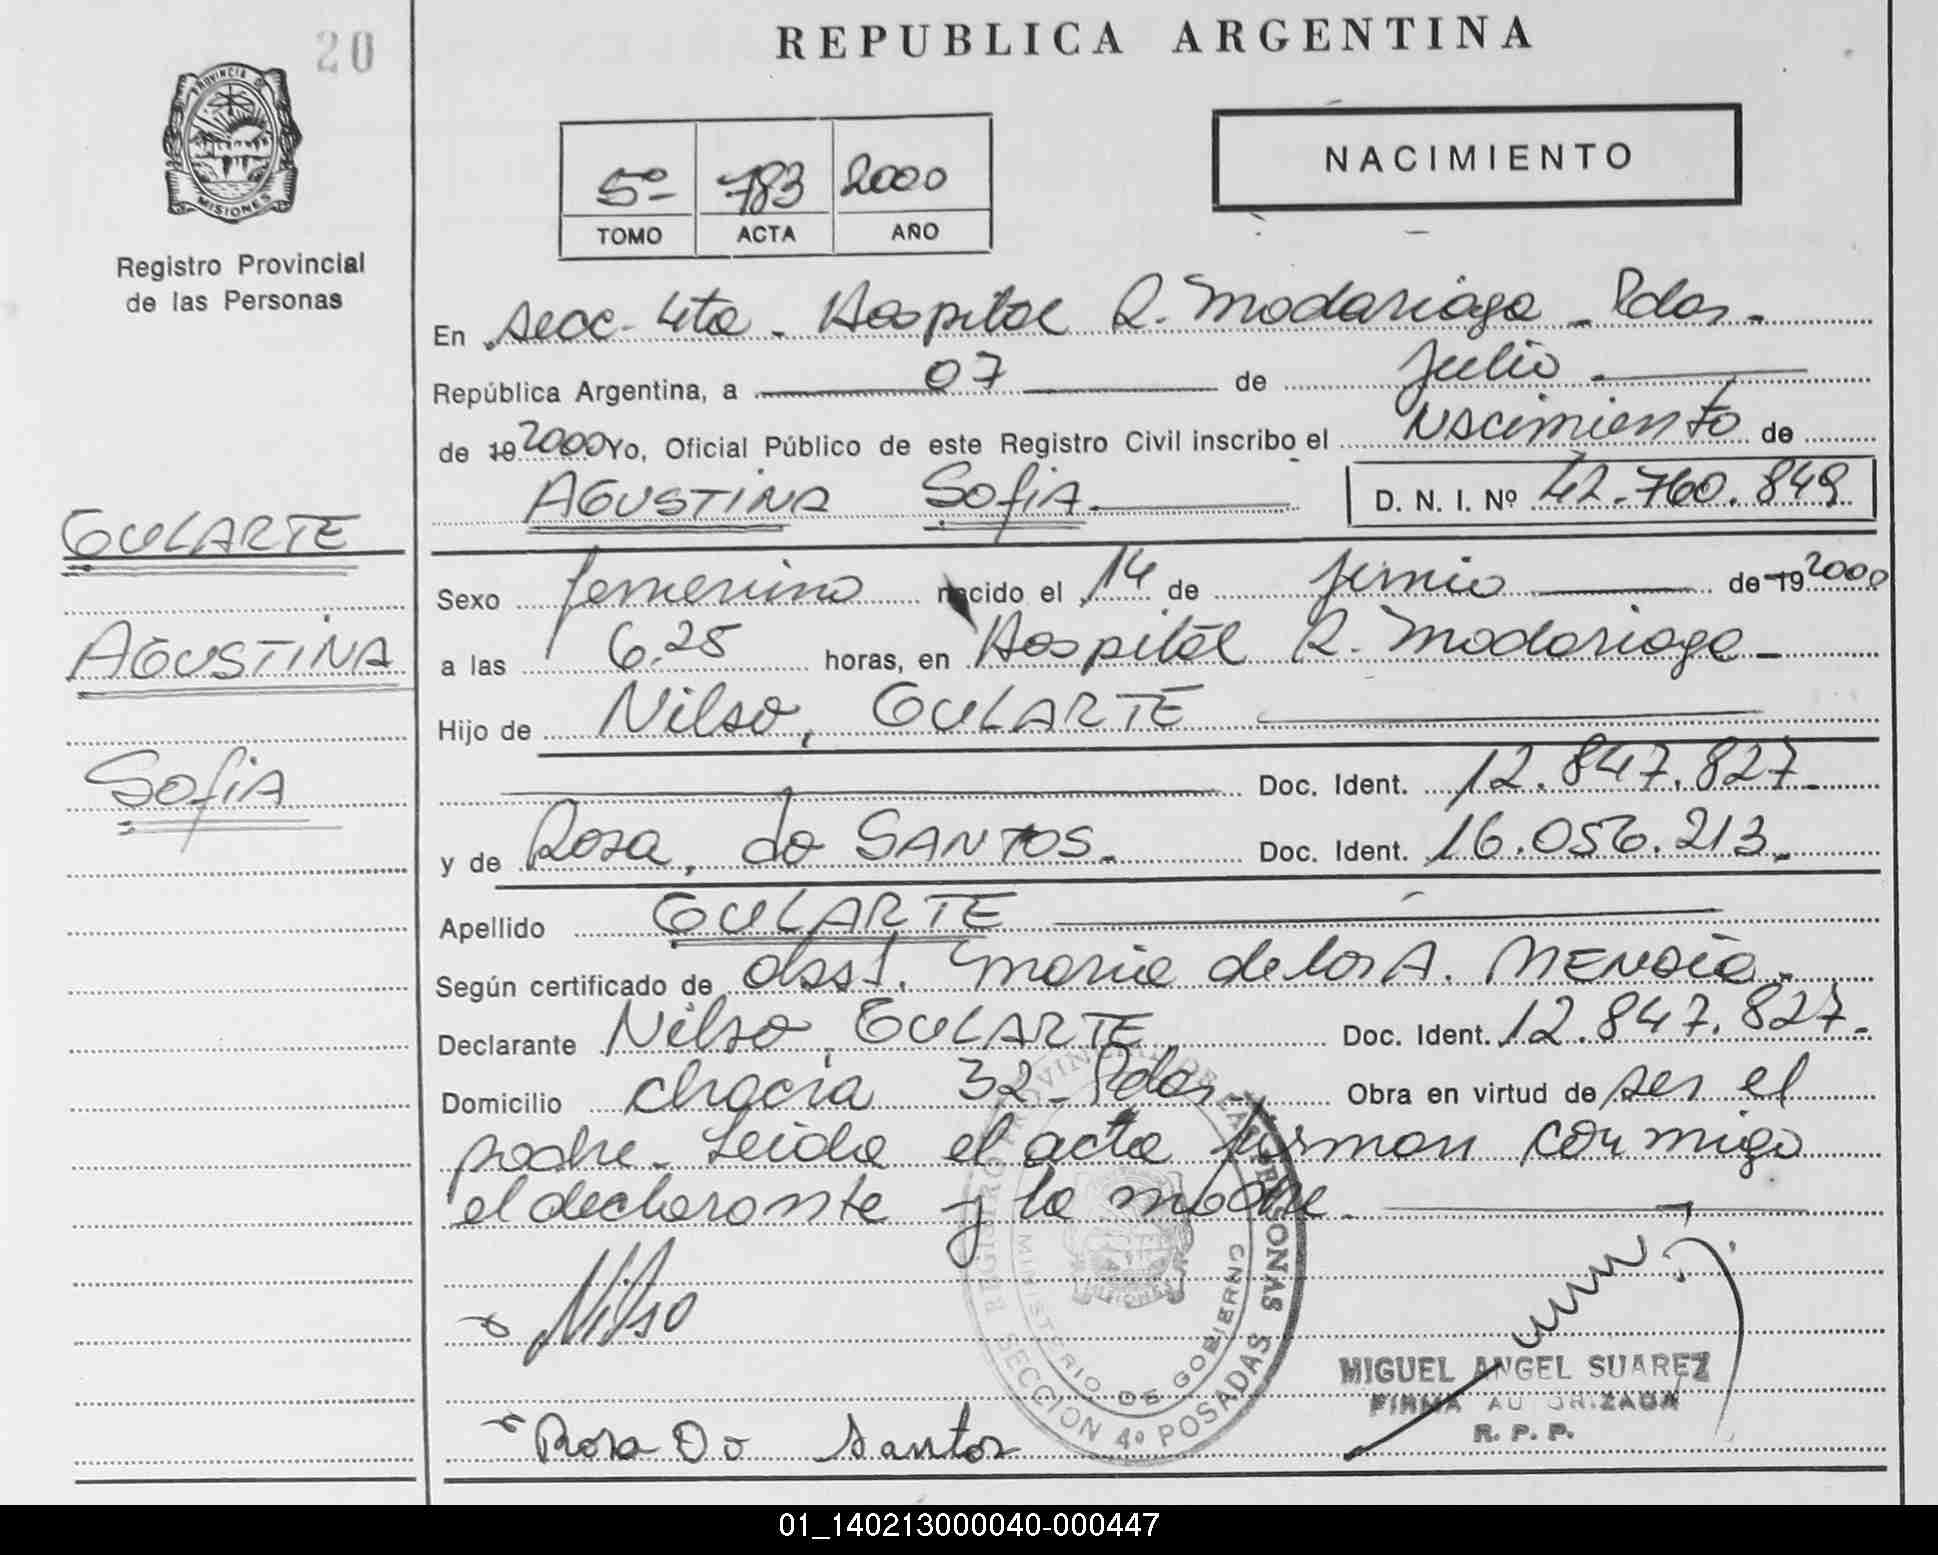 20
REPUBLICA ARGENTINA
PROVINCIA DE
MISIONES
Registro Provincial
de las Personas
5º 783 2000
TOMO ACTA AÑO
NACIMIENTO
En secc. 4ta - Hospital R. Madariaga - Pdas.
República Argentina, a 07 de Julio
de 19 2000 Yo, Oficial Público de este Registro Civil inscribo el Nacimiento de
AGUSTINA SOFIA D. N. I. Nº 42.760.849
GULARTE
AGUSTINA
SOFIA
Sexo femenino nacido el 14 de junio de 19 2000
a las 6.25 horas, en Hospital R. Madariaga
Hijo de Nilso, GULARTE
Doc. Ident. 12.847.827
y de Rosa, do SANTOS. Doc. Ident. 16.056.213
Apellido GULARTE
Según certificado de obst. Maria de los A.
Declarante Nilso, GULARTE Doc. Ident. 12.847.827
Domicilio chacra 32 - Pdas. Obra en virtud de ser el
padre - Leida el acta firman conmigo
el declarante y la madre.
Nilso
Rosa Do Santos
REGISTRO PROVINCIAL DE LAS PERSONAS
MINISTERIO DE GOBIERNO
SECCION 4º POSADAS
MIGUEL ANGEL SUAREZ
FIRMA AUTORIZADA
R. P. P.
01_140213000040-000447